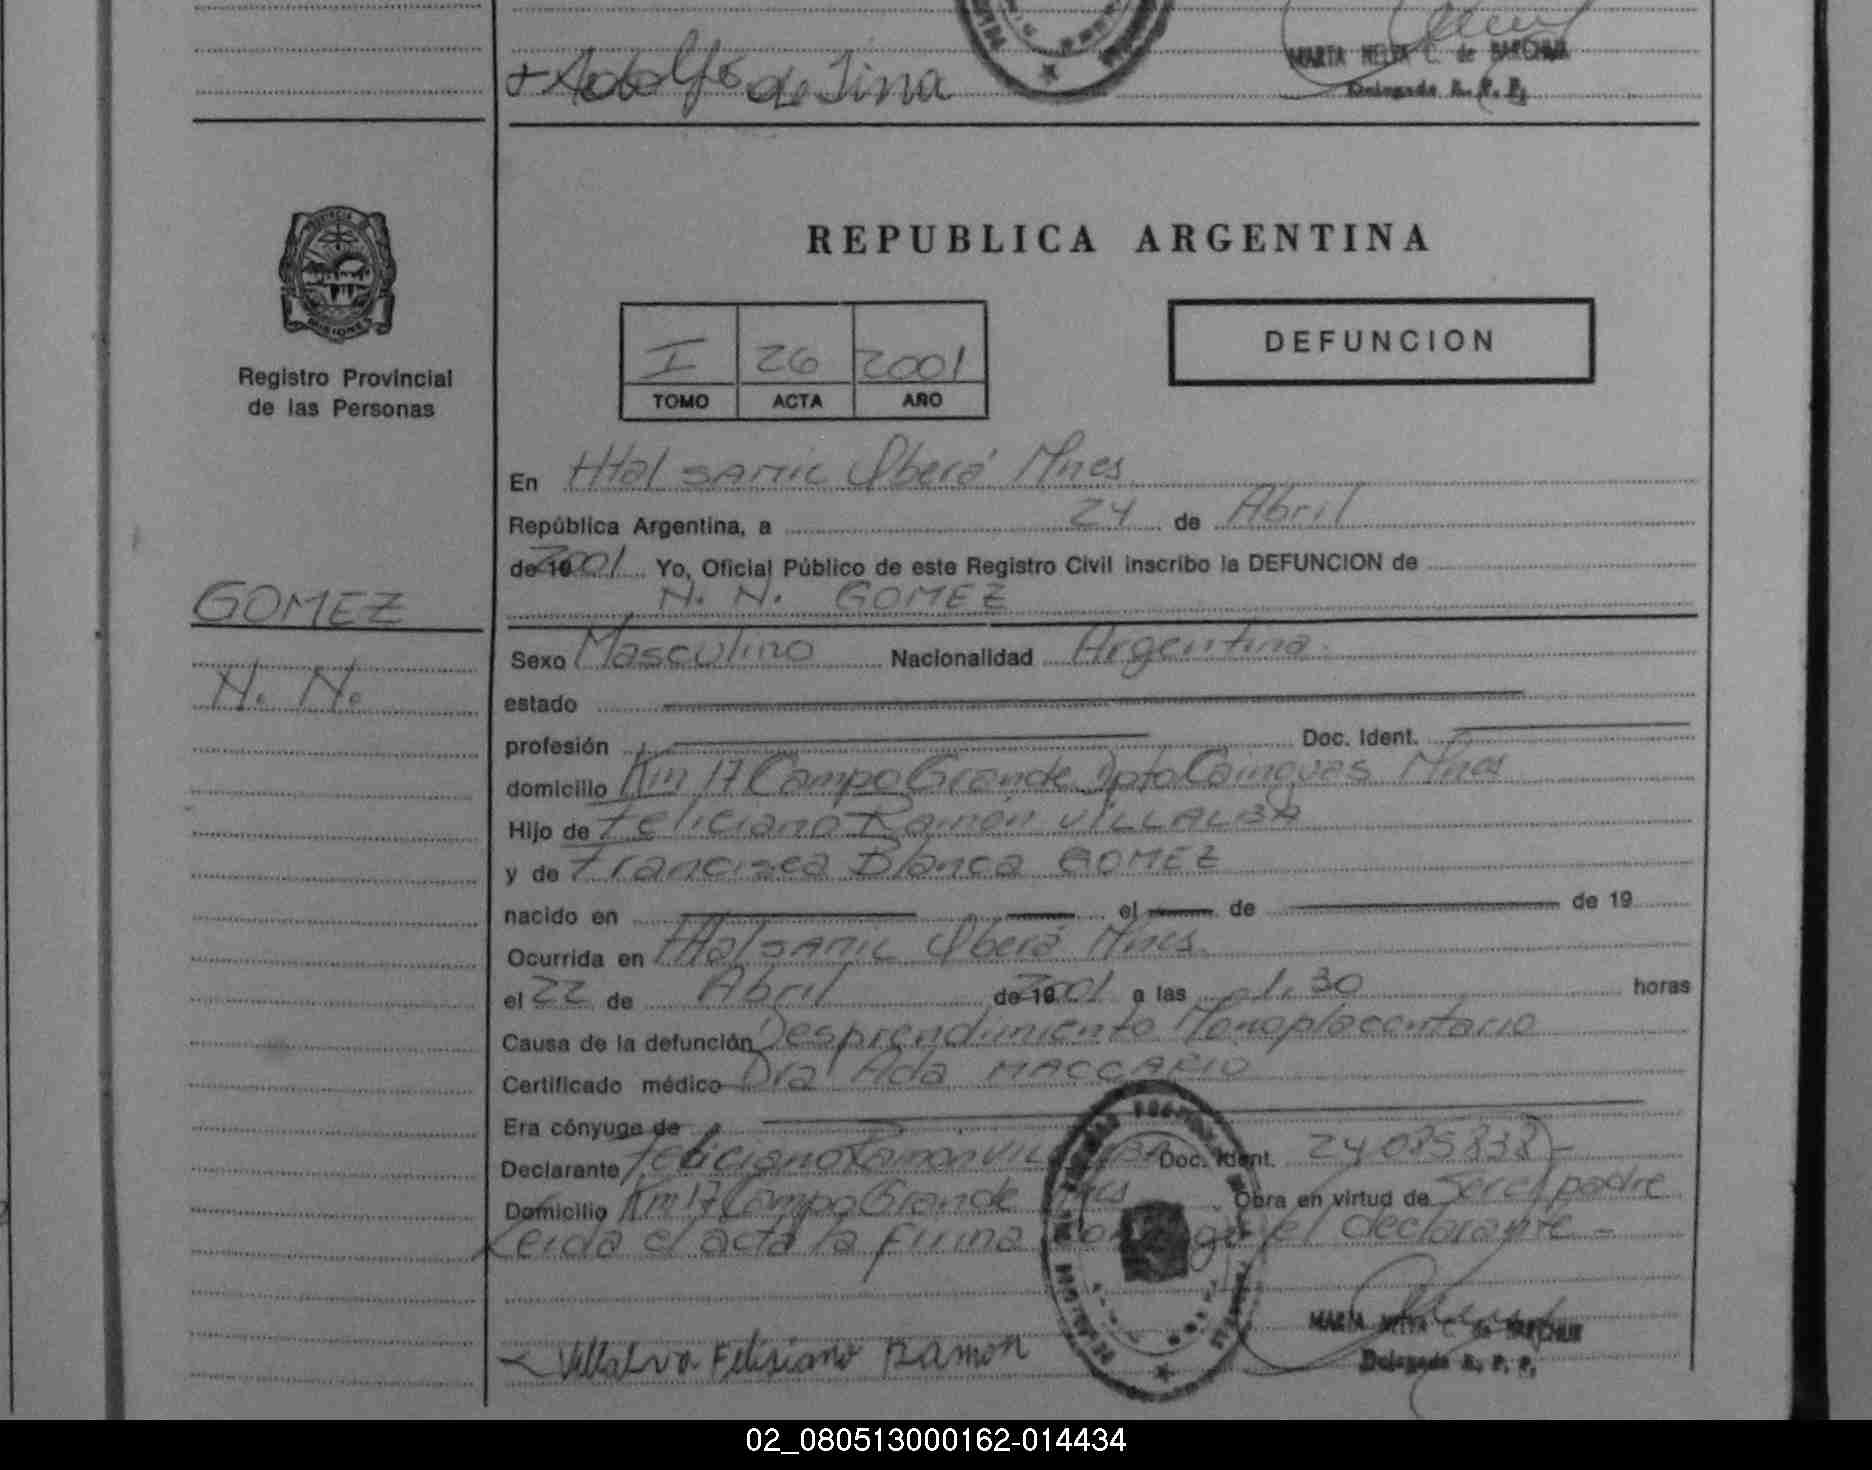 + Adolfo de Lima
MARTA NELVA C. de BARCHUK
Delegada R. P. P.
PROVINCIA DE
MISIONES
Registro Provincial
de las Personas
GOMEZ
N. N.
REPUBLICA ARGENTINA
I 26 2001
TOMO ACTA AÑO
DEFUNCION
En Htal SAMIC Oberá Mnes
República Argentina, a 24 de Abril
de 19 2001 Yo, Oficial Público de este Registro Civil inscribo la DEFUNCION de
N. N. GOMEZ
Sexo Masculino Nacionalidad Argentina.
estado
profesión Doc. Ident.
domicilio Km 17 Campo Grande Dpto Cainguas Mnes
Hijo de Feliciano Ramón VILLALBA
y de Francisca Blanca GOMEZ
nacido en el de de 19
Ocurrida en Htal SAMIC Oberá Mnes
el 22 de Abril de 19 2001 a las 1.30 horas
Causa de la defunción Desprendimiento Monoplacentario
Certificado médico Dra Ada MACCARIO
Era cónyuge de
Declarante Feliciano Ramon Doc. Ident. 24085838)-
Domicilio Km 17 Campo Grande Mnes Obra en virtud de ser el padre
Leida el acta la firma conmigo el declarante -
Villalva Felisiano Ramon
MARTA NELVA C. de BARCHUK
Delegada R. P. P.
02_080513000162-014434